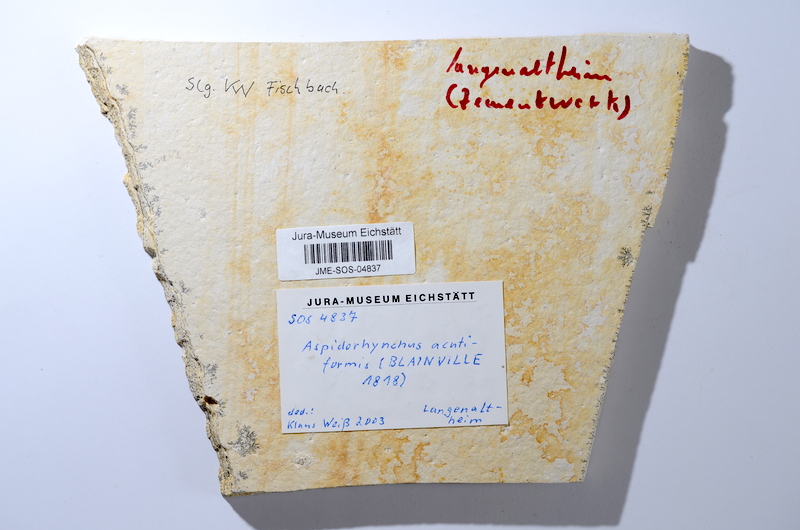 Slg. KW Fischbach
Langenaltheim
(Zementwerk)
Jura-Museum Eichstätt
JME-SOS-04837
JURA-MUSEUM EICHSTÄTT
SOS 4837
Aspidorhynchus acuti-
formis (BLAINVILLE
1818)
ded.:
Klaus Weiß 2003
Langenalt-
heim